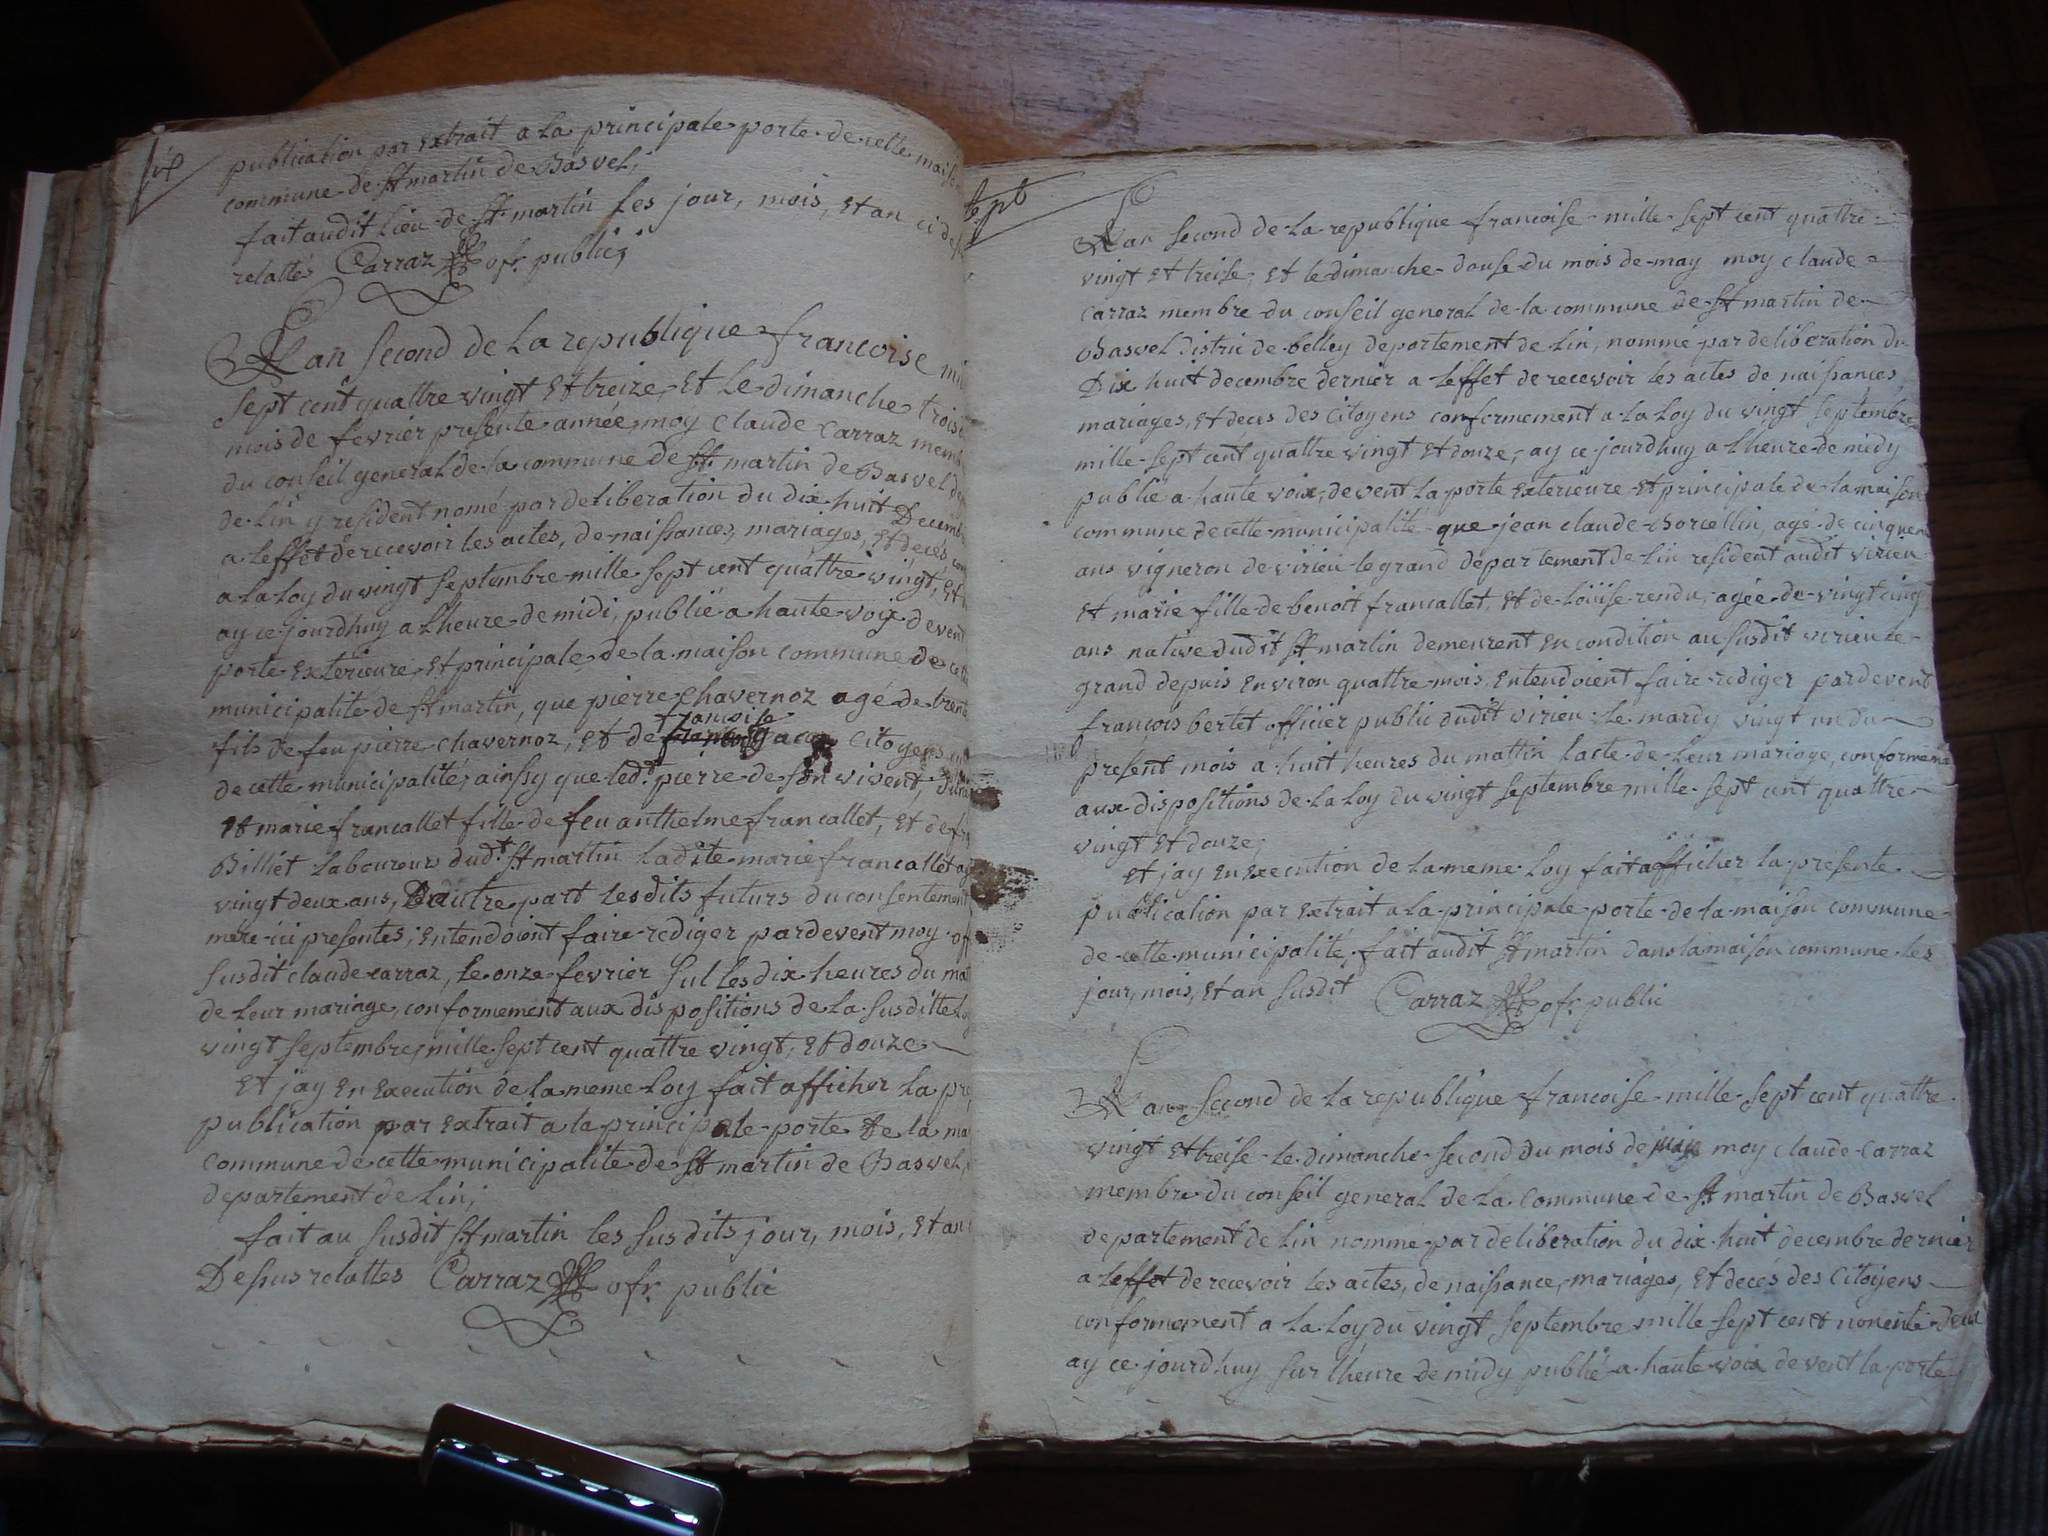 publication par extrait a la principale porte de cette maison
commune de St martin de Bavel,
fait audit lieu de St martin les jour, mois, et an ci des
relattés Carraz ofr. public,
Lan second de la republique francoise mil
sept cent quattre vingt et treize, et le dimanche trois
mois de fevrier presente année, moy claude Carraz memb
du conseil general de la commune de St martin de Basvel
de lin y resident nomé par deliberation du dix huit Decemb
a leffet de recevoir les actes, de naissances, mariages, et decés con
a la loy du vingt septembre mille sept cent quattre vingt, et
ay ce jourdhuy a lheure de midi, publié a haute voix devent
porte exterieure et principale de la maison commune de cette
municipalité de St martin, que pierre chavernoz agé de trente
fils de feu pierre chavernoz, et de francoise citoyens
de cette municipalité, ainssy que led.t pierre de son vivent,
et marie francallet fille de feu anthelme francallet, et de
Billiet laboureurs dud.t St martin ladite marie francallet ag
vingt deux ans, Dautre part lesdits futurs du consentement
mére ici presentes; entendoient faire rediger pardevent moy off
susdit claude carraz, le onze fevrier sul les dix heures du mat
de leur mariage, conformement aux dispositions de la susditte loy
vingt septembre, mille sept cent quattre vingt, et douze
Et jay en execution de la meme loy fait afficher la pre
publication par extrait a la principale porte de la ma
commune de cette municipalité de St martin de Basvel,
departement de lin;
fait au susdit St martin les susdits jour, mois, et an
Dessus relattes Carraz ofr. public
sept
Lan second de la republique francoise mille sept cent quattre
vingt et treise, et le dimanche douse du mois de may moy claude
carraz membre du conseil general de la commune de St martin de
Basvel distric de belley departement de lin, nommé par deliberation du
Dix huit decembre dernier a leffet de recevoir les actes de naissances,
mariages, et deces des citoyens conformement a la loy du vingt septembre
mille sept cent quattre vingt et douze, ay ce jourdhuy a lheure de midy
publié a haute voix, devent la porte exterieure et principale de la maison
commune de cette municipalité que jean claude Borcellin, agé de cinquen
ans vigneron de virieu le grand departement de lin resident audit virieu
et marie fille de benoit francallet, et de loüise rendu, agée de vingt cinq
ans native dudit St martin demeurent en condition au susdit virieu le
grand depuis environ quattre mois, entendoient faire rediger pardevent
francois bertet officier public dudit virieu le mardy vingt un du
present mois a huit heures du mattin lacte de leur mariage, conformem
aux dispositions de la loy du vingt septembre mille sept cent quattre
vingt et douze,
et jay en execution de la meme loy fait afficher la présente
publication par extrait a la principale porte de la maison commune
de cette municipalité, fait audit St martin dans la maison commune les
jour, mois, et an susdit Carraz ofr. public
Lan second de la republique francoise mille sept cent quattre
vingt et treise le dimanche second du mois de juin moy claude carraz
membre du conseil general de la commune de St martin de Basvel
departement de lin nommé par deliberation du dix huit decembre dernier
a leffet de recevoir les actes, de naissance, mariages, et decés des citoyens
conformement a la loy du vingt septembre mille sept cent nonente deux
ay ce jourdhuy sur lheure de midy publié a haute voix devent la porte